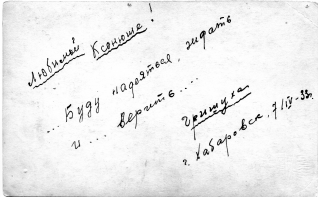 Любимой Ксенюше!
... Буду надеяться, ждать
и ... верить....
Гришуха
г. Хабаровск, 7/IV-33г.